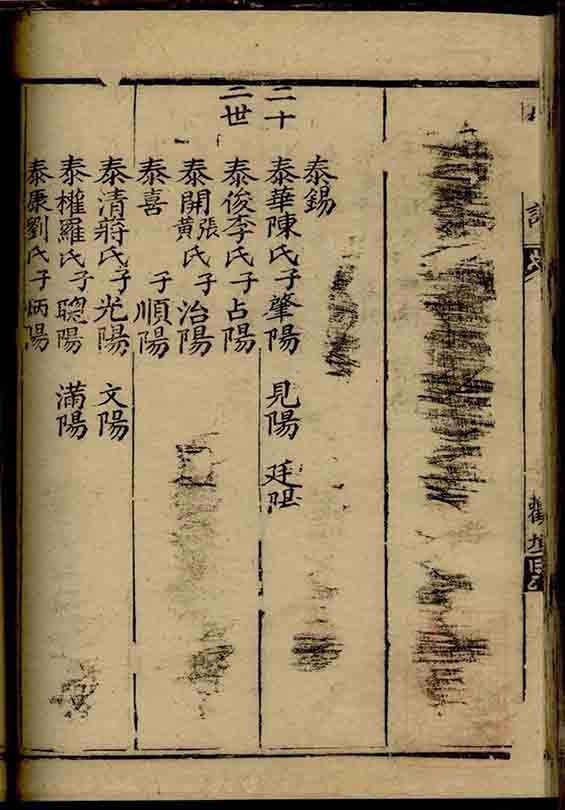 二十二世
泰錫
泰華陳氏子肇陽 見陽 廷陽
泰俊李氏子占陽
泰開張黃氏子治陽
泰喜 子順陽
泰清蔣氏子光陽 文陽
泰權羅氏子聰陽 滿陽
泰康劉氏子炳陽